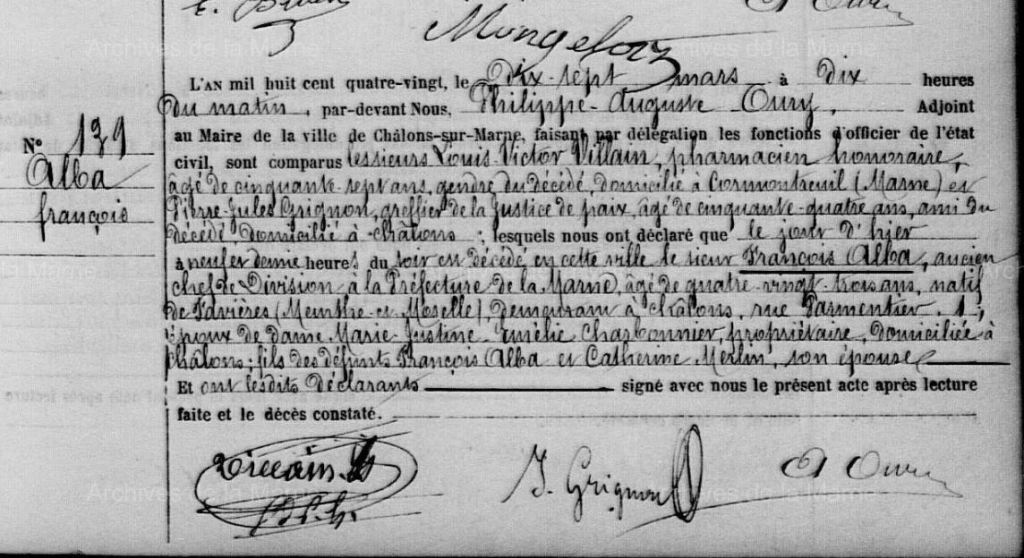 Mongeloz
L'AN mil huit cent quatre-vingt, le Dix-sept mars à Dix heures
Du matin, par-devant Nous, Philippe-Auguste Oury, Adjoint
au Maire de la ville de Châlons-sur-Marne, faisant par délégation les fonctions d'officier de l'état
civil, sont comparus les sieurs Louis Victor Villain, pharmacien honoraire,
âgé de cinquante-sept ans, gendre du décédé, domicilié à Cormontreuil (Marne) et
Pierre-Jules Grignon, greffier de la Justice de paix, âgé de cinquante-quatre ans, ami du
décédé, Domicilié à Châlons ; lesquels nous ont déclaré que le jour d'hier
à neuf et demie heures du soir est décédé en cette ville le sieur François Alba, ancien
chef de Division à la Préfecture de la Marne, âgé de quatre-vingt-trois ans, natif
de Favières (Meurthe-et-Moselle), demeurant à Châlons, rue Parmentier, 1 ;
époux de dame Marie Justine Emélie Charbonnier, propriétaire, domiciliée à
Châlons ; fils des défunts François Alba et Catherine Merlin, son épouse
Et ont lesdits Déclarants signé avec nous le présent acte après lecture
faite et le décès constaté.
N° 139
Alba
françois
Villain
J. Grignon
A Oury
Archives de la Marne
Archives de la Marne
Archives de la Marne
Archives de la Marne